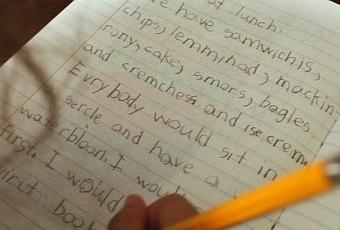 at lunch.
ve have samwichis,
chips, lemminad, mackin
rony, cake, smors, bagles
and cremches and isecrem.
Evrybody would sit in
a sercle and have a
waterbloon. I would
first. I would